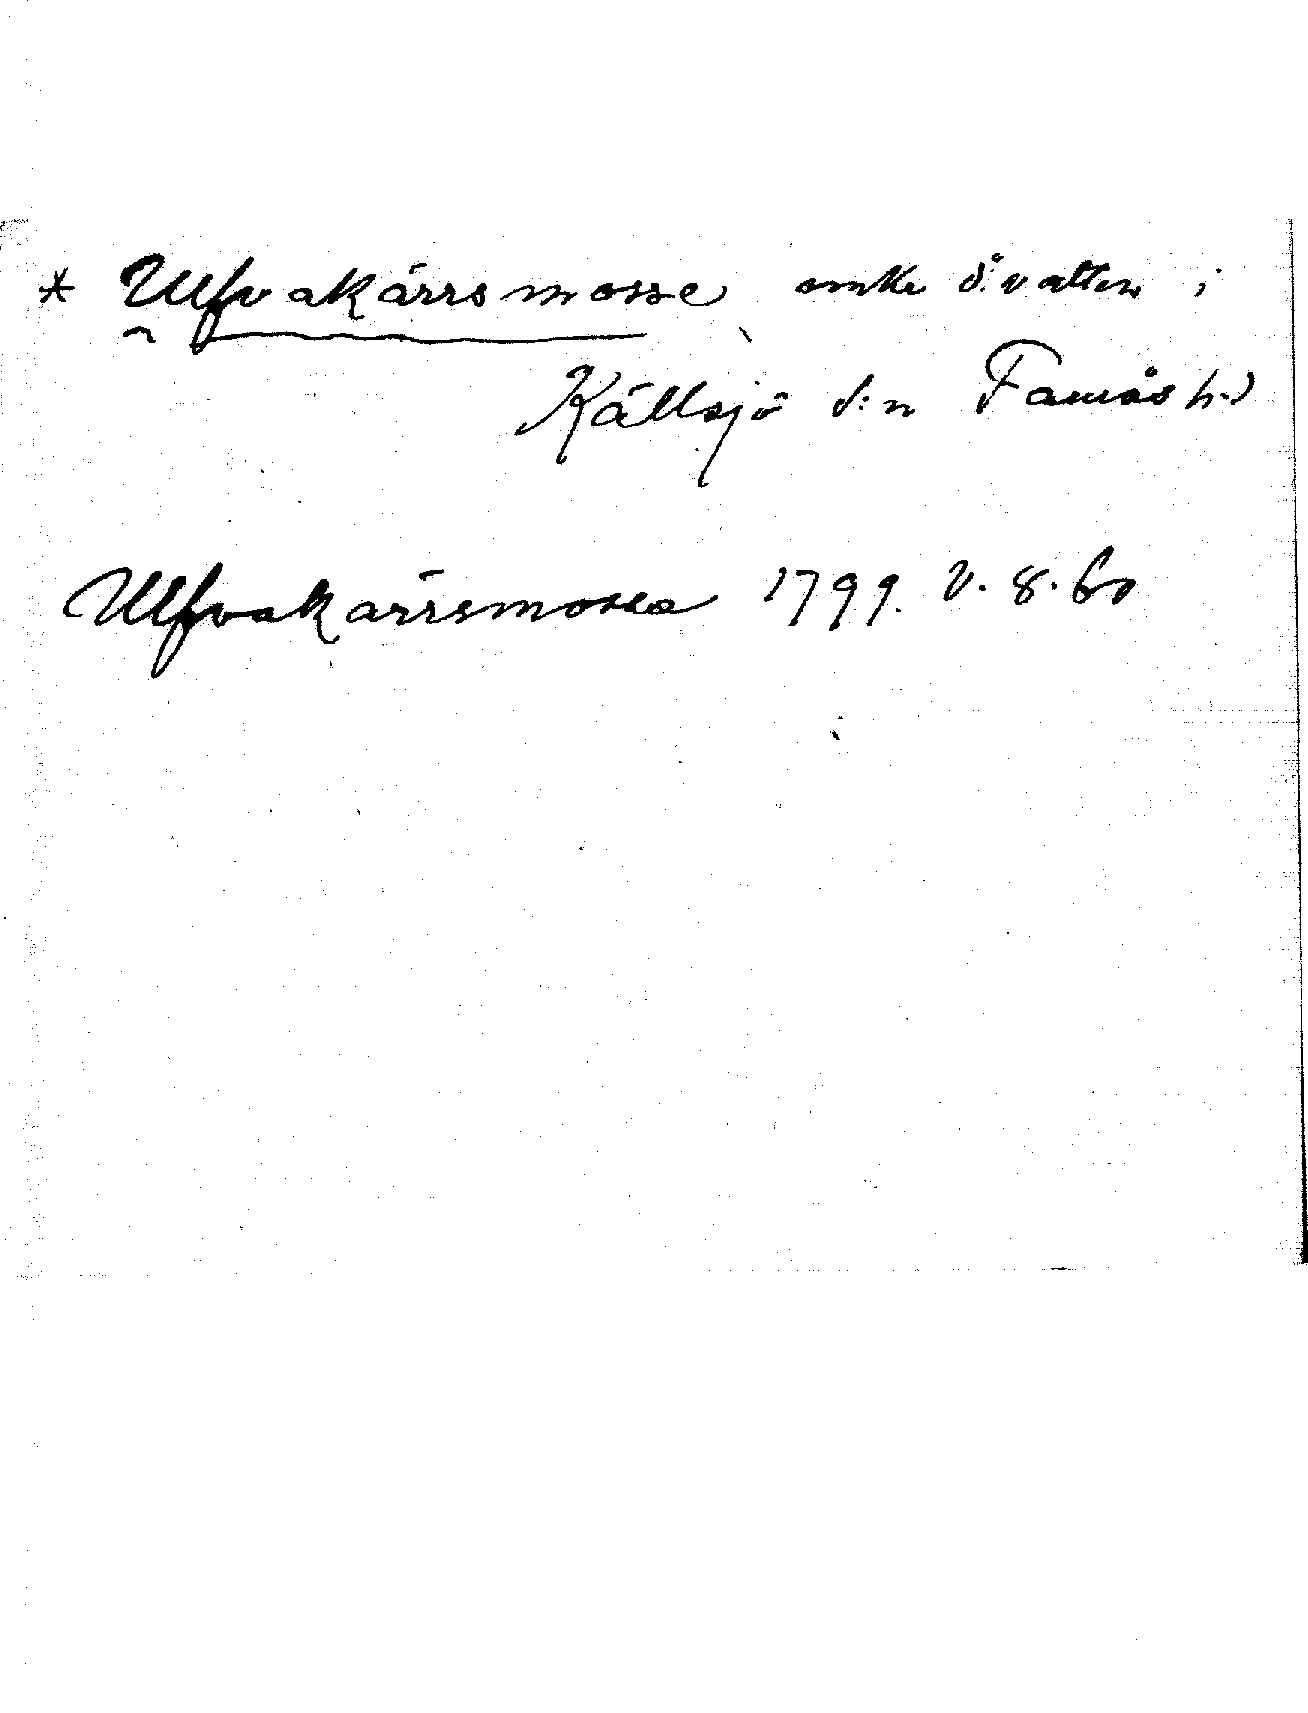 * Ulfvakärrsmosse
Källsjö s:n Faurås hd
Ulfvakärrsmossa 1799. V. 8. 60